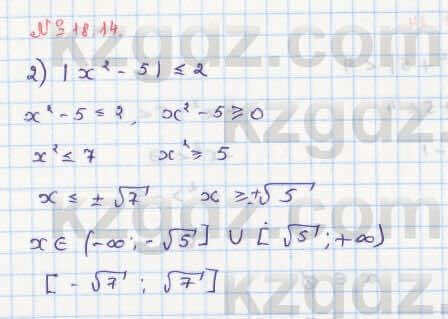 № 18.14.
2) | x² - 5 | ≤ 2
x² - 5 ≤ 2, x² - 5 ≥ 0
x² ≤ 7 x² ≥ 5
x ≤ ± √7 x ≥ ± √5
x ∈ (-∞; -√5] ∪ [ √5; +∞)
[ - √7 ; √7 ]
kzgdz.com
kzgdz.com
kzgdz.com
kzgdz.com